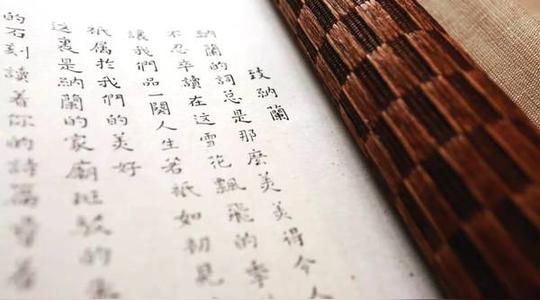 致納蘭
納蘭的詞總是那麼美美得令人
不忍卒讀在這雪花飄飛的季
讓我們品一闋人生若祇如初見
祇屬於我們的美好
這裏是納蘭的家廟斑駁的
的石刻讀着你的詩篇